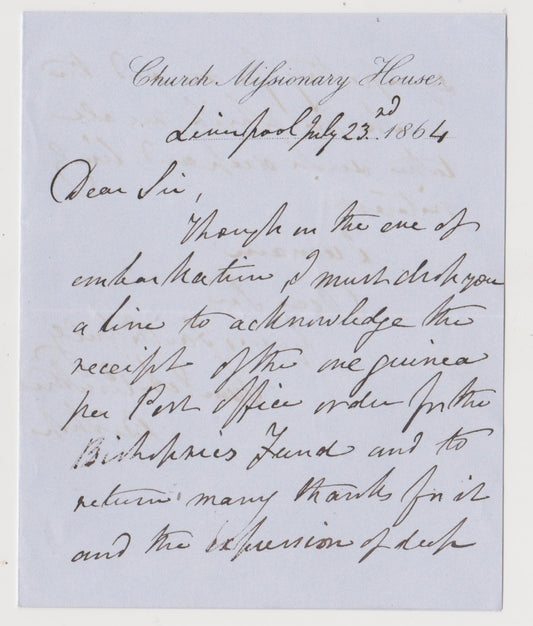 Church Missionary House,
Liverpool July 23rd. 1864
Dear Sir,
Though on the eve of
embarkation, I must drop you
a line to acknowledge the
receipt of the one guinea
per Post office order for the
Bishoprics Fund and to
return many thanks for it
and the expression of deep